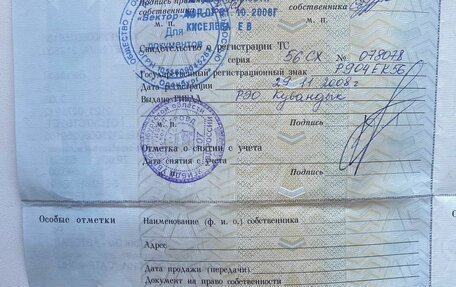 Подпись
собственника
"Вектор-
ДОГ. ОТ 01.10.2008Г
КИСЕЛЕВА Е В
м. п.
м. п.
Для
документов
Свидетельство о регистрации ТС
серия 56 СХ № 078078
Государственный регистрационный знак Р904ЕК56
Дата регистрации 29.11.2008 г
Выдано ГИБДД РЭО Кувандык
м. п.
Подпись
Отметка о снятии с учета
Дата снятия с учета
Подпись
Особые отметки
Наименование (ф. и. о.) собственника
Адрес
Дата продажи (передачи)
Документ на право собственности